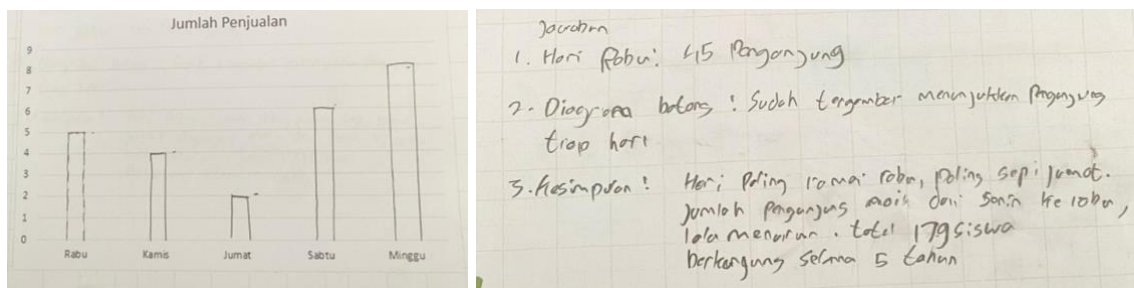 Jumlah Penjualan
9
8
7
6
5
4
3
2
1
0
Rabu
Kamis
Jumat
Sabtu
Minggu
Jawaban
1. Hari Rabu: 45 Pengunjung
2. Diagram batang: Sudah tergambar menunjukkan Pengunjung
tiap hari
3. Kesimpulan: Hari Paling ramai rabu, paling sepi jumat.
Jumlah Pengunjung naik dari Senin ke rabu,
lalu menurun. total 179 siswa
berkunjung selama 5 tahun